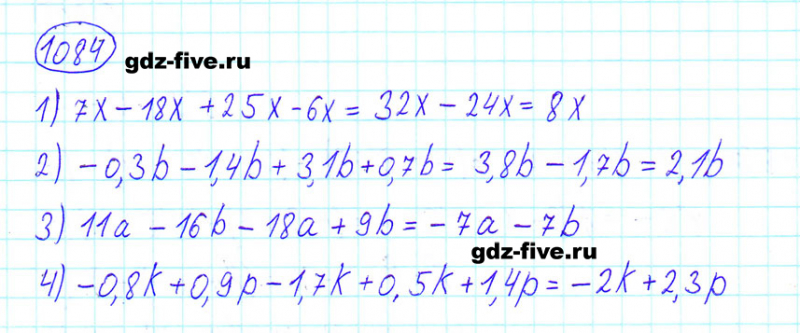 1084
gdz-five.ru
1) 7x - 18x + 25x - 6x = 32x - 24x = 8x
2) -0,3b - 1,4b + 3,1b + 0,7b = 3,8b - 1,7b = 2,1b
3) 11a - 16b - 18a + 9b = -7a - 7b
gdz-five.ru
4) -0,8k + 0,9p - 1,7k + 0,5k + 1,4p = -2k + 2,3p